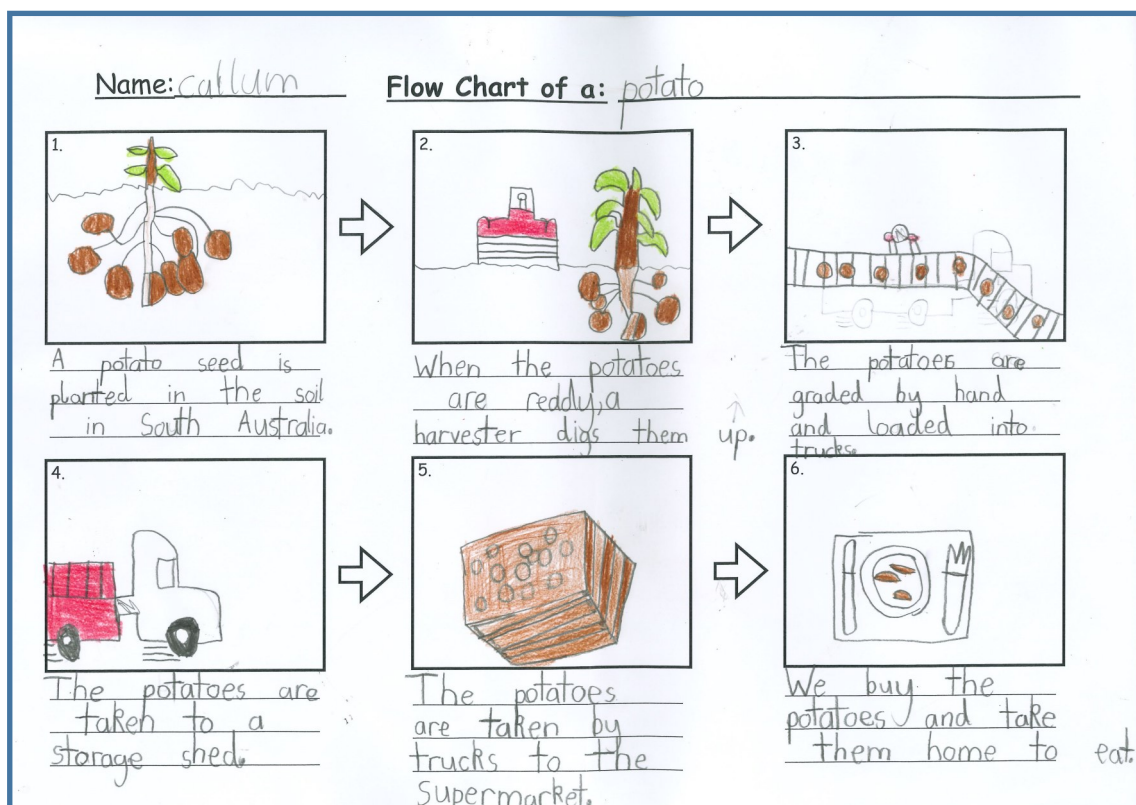 Name: callum
Flow Chart of a: potato
1.
A potato seed is
planted in the soil
in South Australia.
2.
When the potatoes
are reddy, a
harvester digs them up.
3.
The potatoes are
graded by hand
and loaded into
trucks.
4.
The potatoes are
taken to a
storage shed.
5.
The potatoes
are taken by
trucks to the
supermarket.
6.
We buy the
potatoes and take
them home to eat.